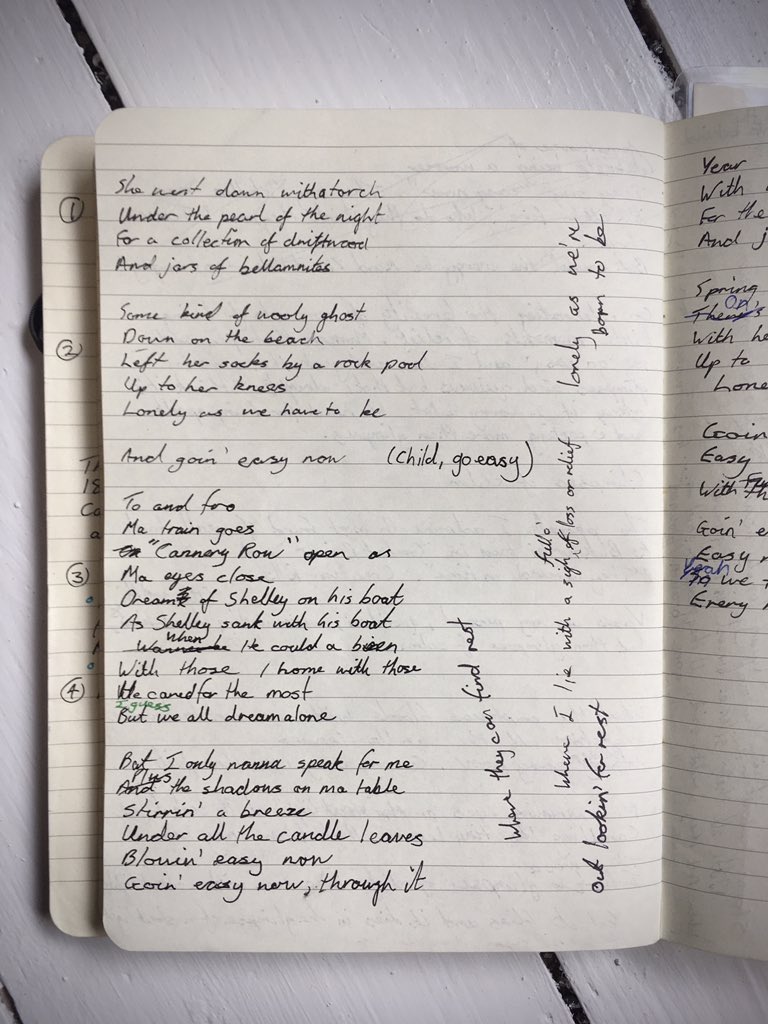 ①
She went down with a torch
Under the pearl of the night
For a collection of driftwood
And jars of bellamnites
②
Some kind of wooly ghost
Down on the beach
Left her socks by a rock pool
Up to her knees
Lonely as we have to be
And goin' easy now (child, go easy)
③
To and fro
Ma train goes
"Cannery Row" open as
Ma eyes close
Dream of Shelley on his boat
As Shelley sank with his boat
When He could a been
With those / home with those
④
He cared for the most
I guess
But we all dream alone
But I only wanna speak for me
Plus
And the shadows on ma table
Stirrin' a breeze
Under all the candle leaves
Blowin' easy now
Goin' easy now, through it
where they can find rest
where I lie with a sigh full o' loss or relief
out lookin' for rest
lonely as we're
born to be
Year
With
For the
And j
Spring
On
There's
With he
Up to
Lone
Goin
Easy
With
Goin' e
Easy n
Yeah
we
Every